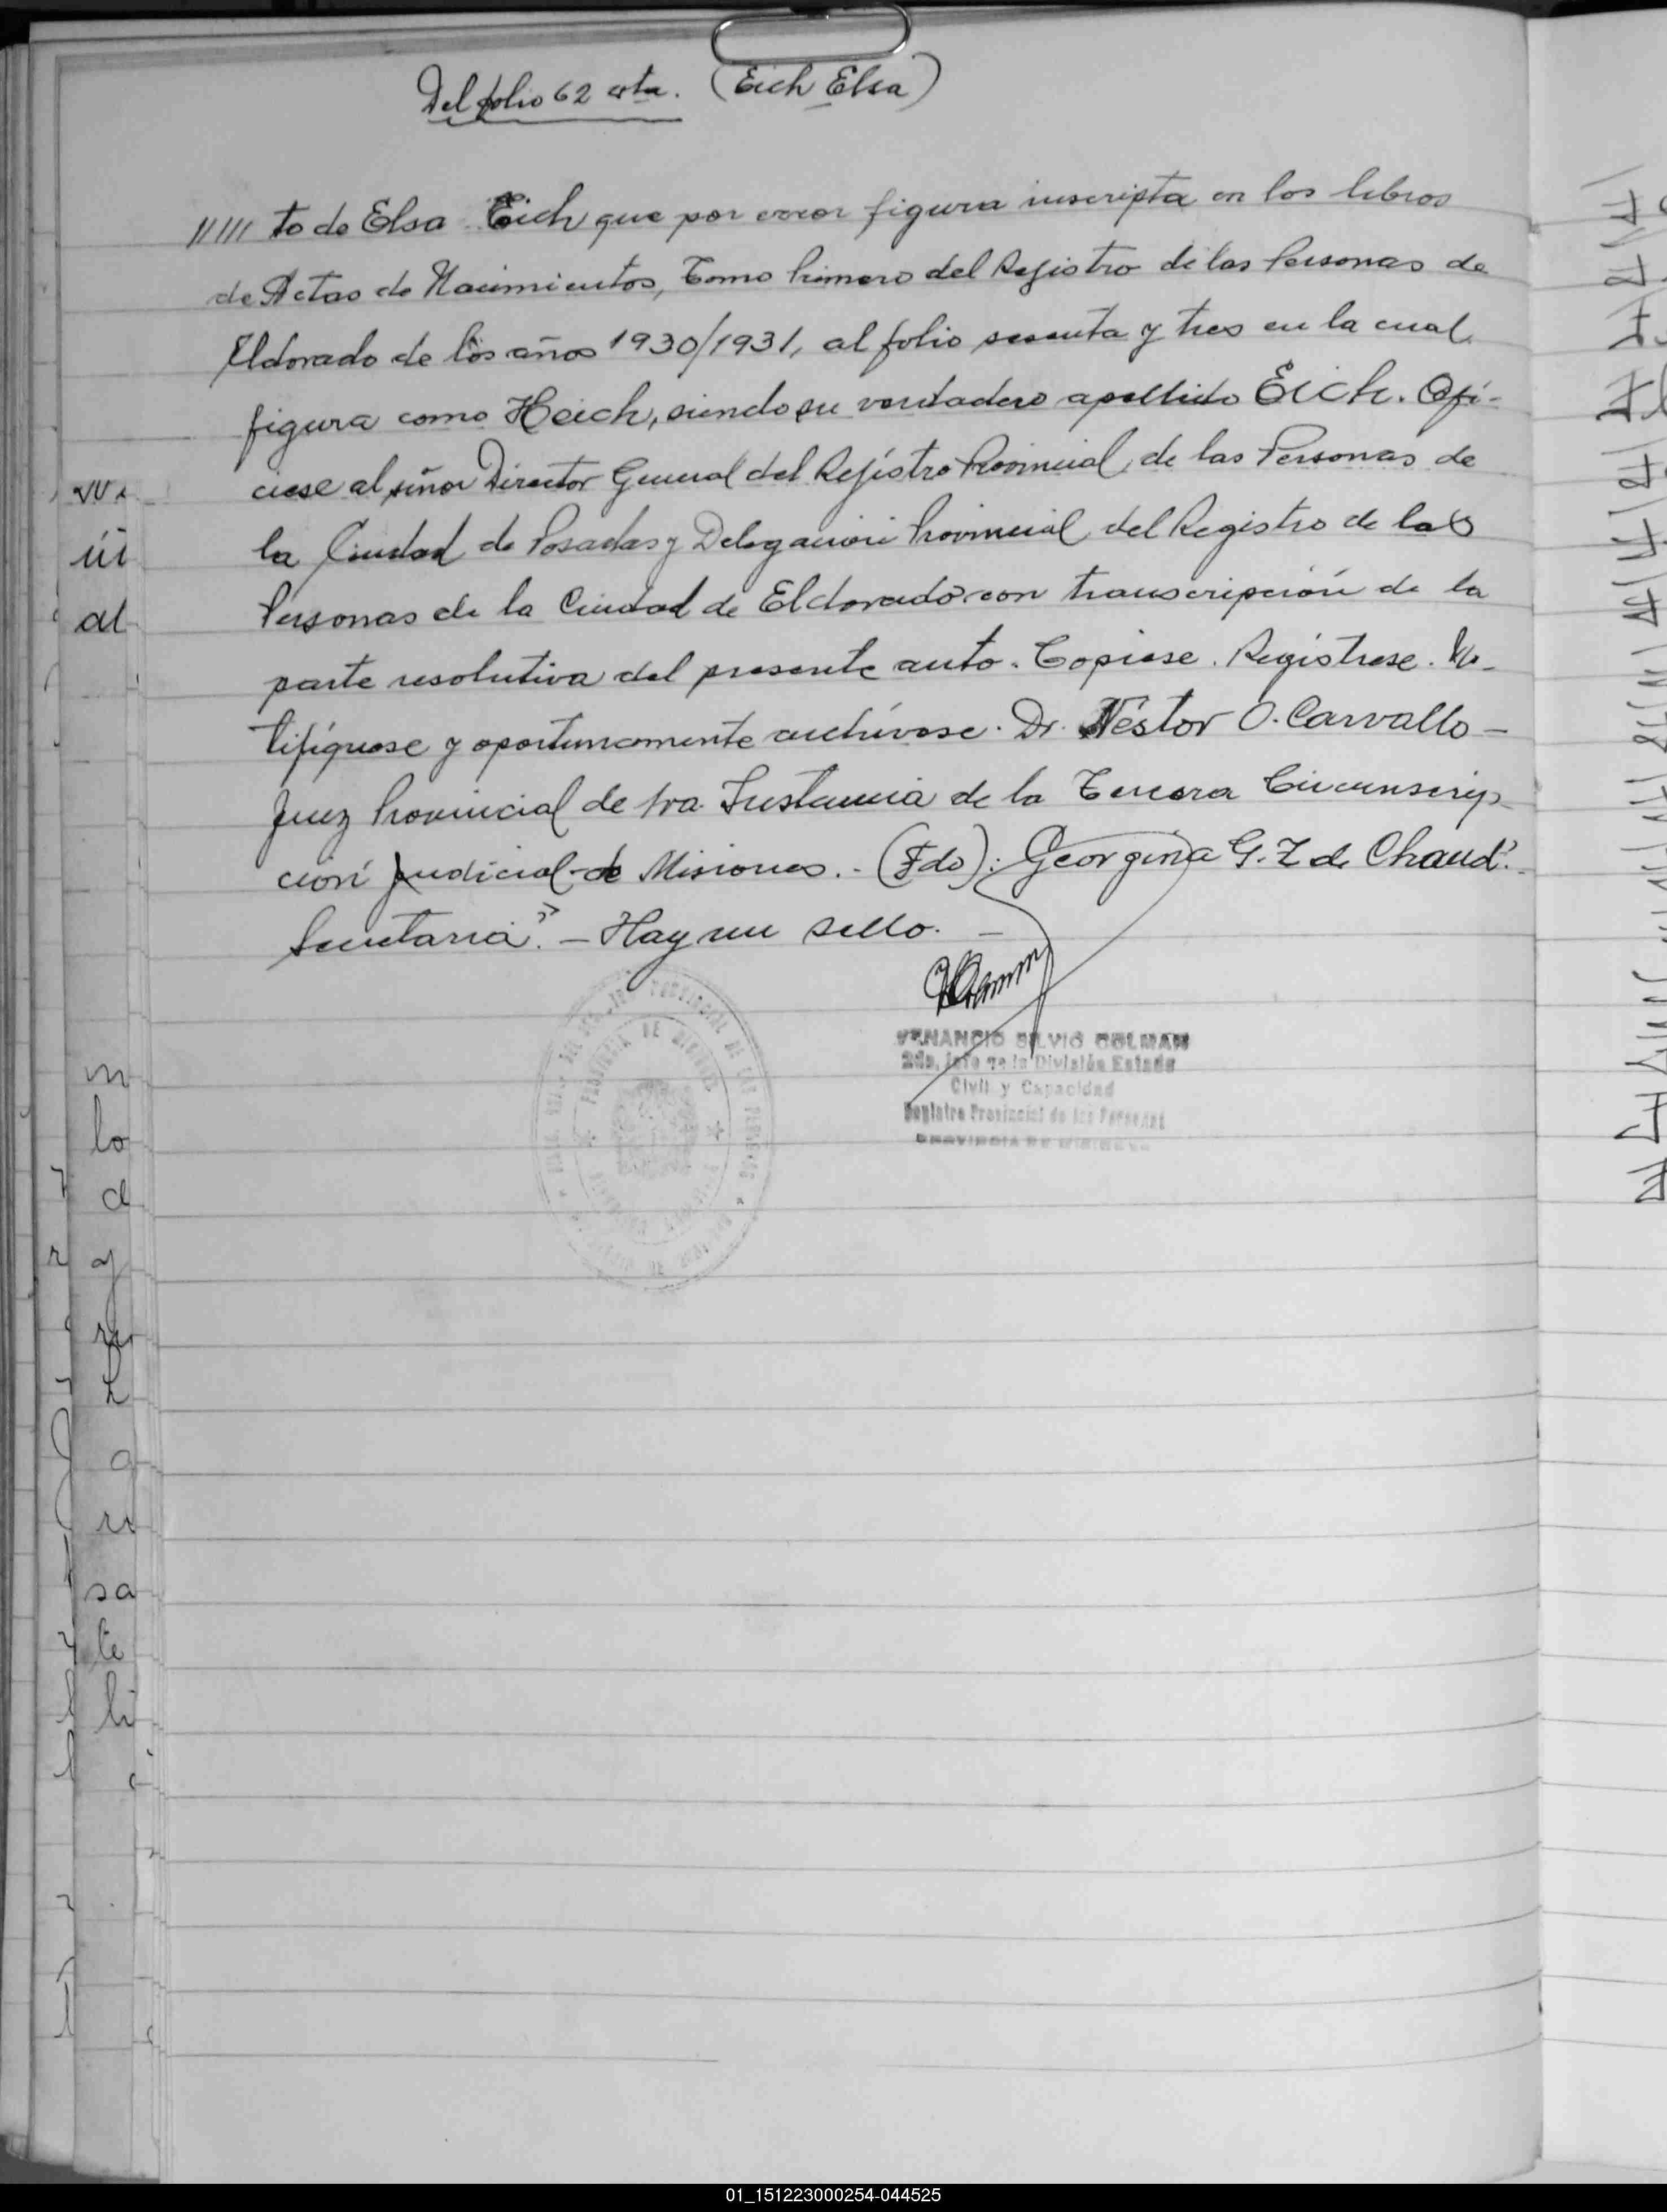 Del folio 62 vta. (Eich Elsa)
////// to de Elsa Eich que por error figura inscripta en los libros
de Actas de Nacimientos, Tomo Primero del Registro de las Personas de
Eldorado de los años 1930/1931, al folio sesenta y tres en la cual
figura como Heich, siendo su verdadero apellido Eich. Ofi-
ciese al señor Director General del Rejistro Provincial de las Personas de
la Ciudad de Posadas y Delegación Provincial del Registro de las
Personas de la Ciudad de Eldorado con transcripción de la
parte resolutiva del presente auto. Copiese. Regístrese. No-
tifíquese y oportunamente archívese. Dr. Néstor O. Carvallo -
Juez Provincial de 1ra. Instancia de la Tercera Circunscrip-
ción Judicial de Misiones. - (Fdo): Georgina G. Z de Chaud.
Secretaria". - Hay un sello. -
VENANCIO SILVIO COLMAN
2do. Jefe de la División Estado
Civil y Capacidad
Registro Provincial de las Personas
PROVINCIA DE MISIONES
PROVINCIA DE MISIONES
vi
di
al
m
lo
d
y
h
a
sa
te
li
01_151223000254-044525